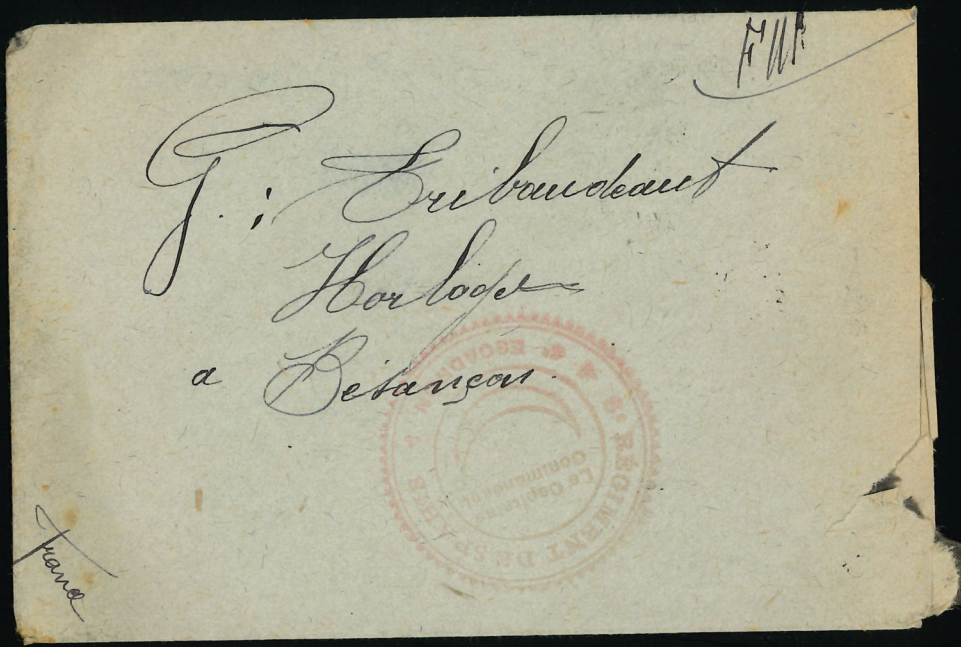 F.M.
G. : Tribaudeaut
Horloger
a Besançon.
France
RÉGIMENT DE SPAHIS
ESCADRON
Le Capitaine
Commandant